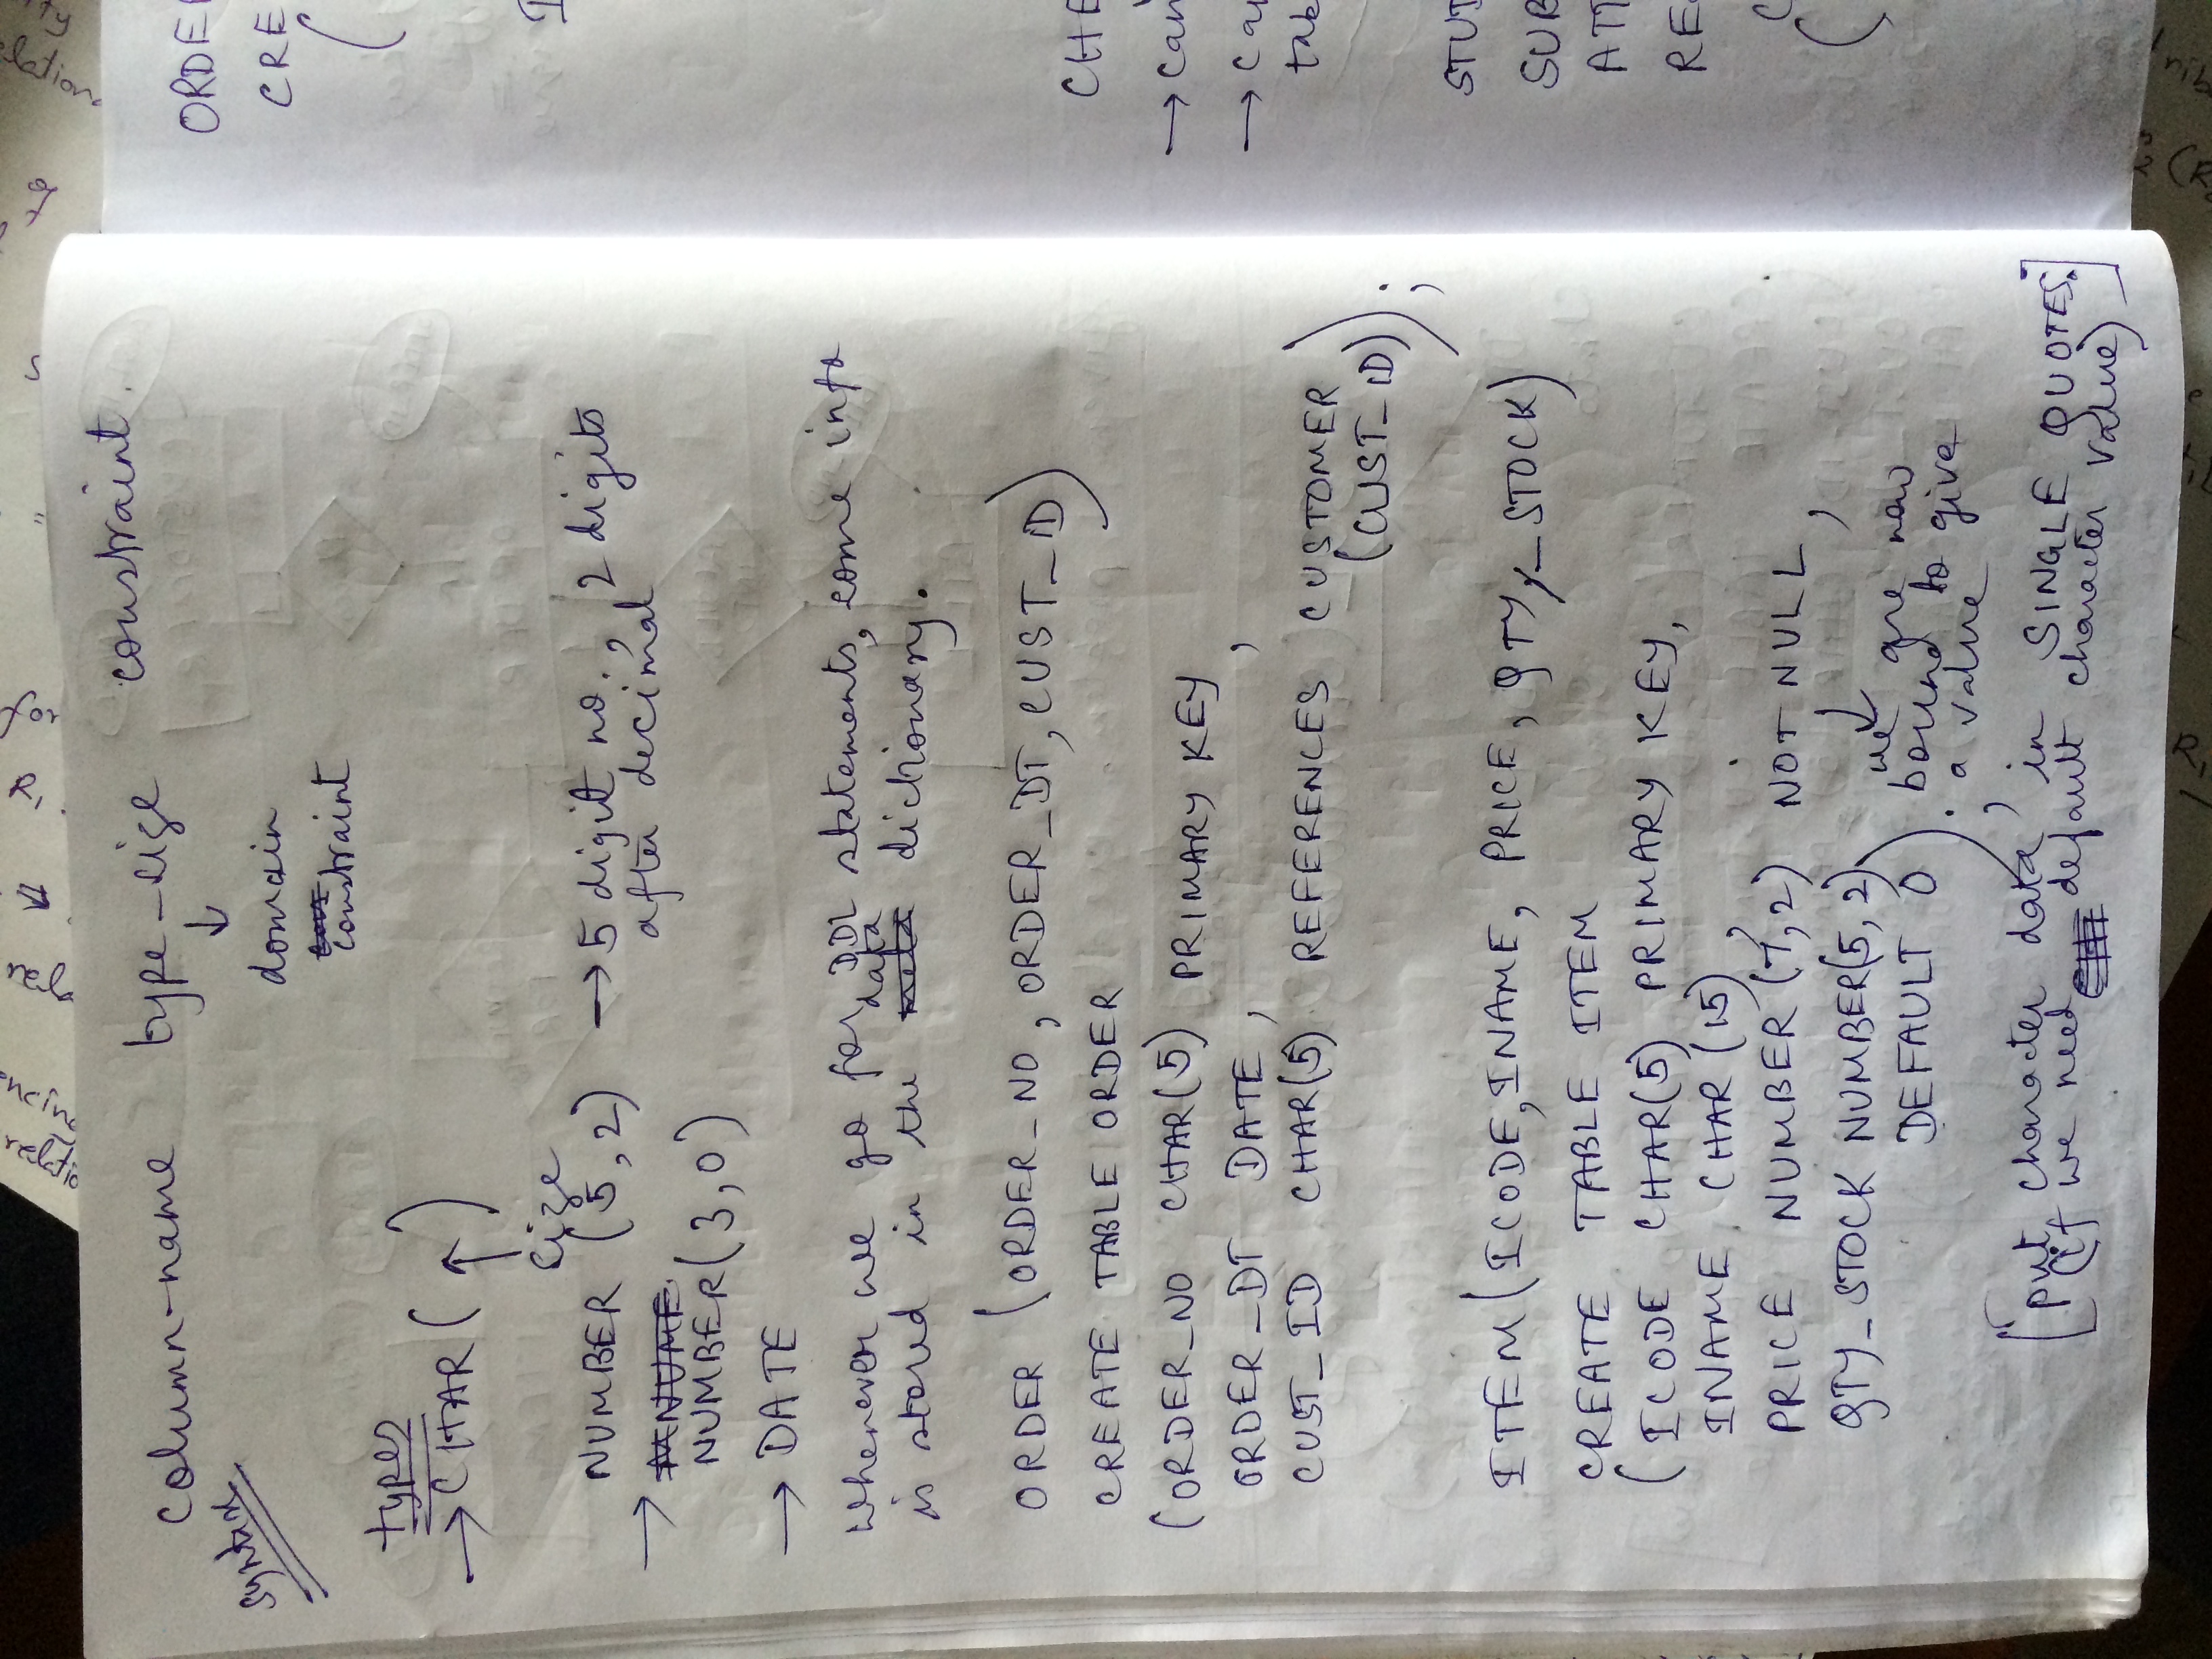 column-name type-size constraint.
syntax
↓
domain
constraint
types
→ CHAR ( ↑ )
size
NUMBER (5,2) → 5 digit no., 2 digits
after decimal
→
NUMBER(3,0)
→ DATE
Whenever we go for DDL statements, some info
is stored in the data dictionary.
ORDER (ORDER_NO, ORDER_DT, CUST_ID)
CREATE TABLE ORDER
(ORDER_NO CHAR(5) PRIMARY KEY,
ORDER_DT DATE,
CUST_ID CHAR(5) REFERENCES CUSTOMER
(CUST_ID));
ITEM(ICODE, INAME, PRICE, QTY_STOCK)
CREATE TABLE ITEM
(ICODE CHAR(5) PRIMARY KEY,
INAME CHAR(15),
PRICE NUMBER(7,2) NOT NULL,
QTY_STOCK NUMBER(5,2)
DEFAULT 0);
↓
we are now
bound to give
a value
[put character data in SINGLE QUOTES.
(if we need default character value)]
ORDE
CRE
(
I
CHE
→ can
→ ca
tab
STU
SUB
ATT
RE
C
(